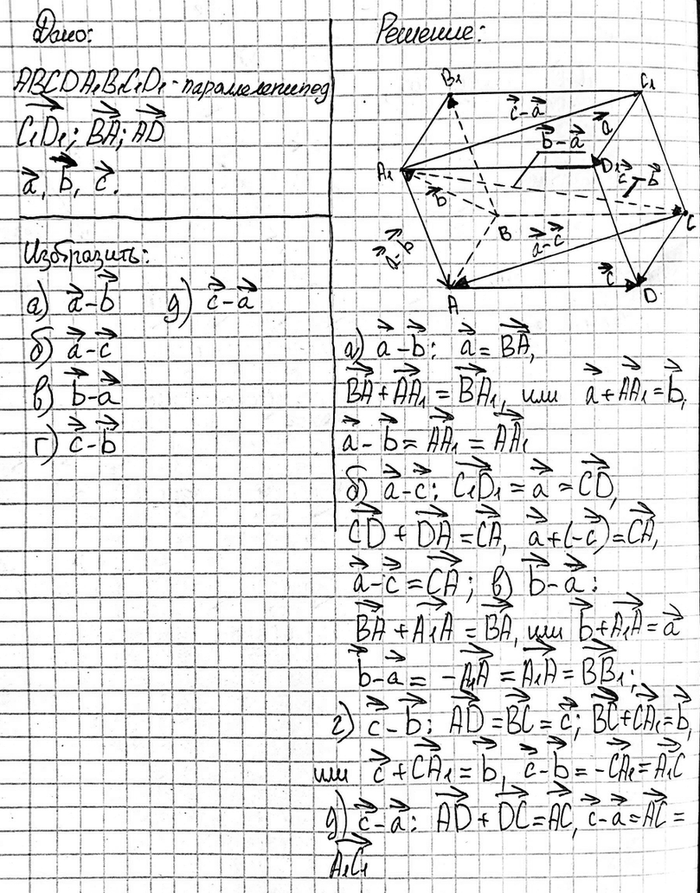 Дано:
ABCDA₁B₁C₁D₁ - параллелепипед
C₁D₁; BA; AD
a, b, c.
Изобразить:
а) a-b
д) c-a
б) a-c
в) b-a
г) c-b
Решение:
B₁
C₁
c-a
a
b-a
A₁
D₁
c-b
b
B
C
a-b
a-c
c
A
D
а) a-b: a=BA,
BA+AA₁=BA₁, или a+AA₁=b,
a-b=AA₁=AA₁
б) a-c: C₁D₁=a=CD,
CD+DA=CA, a+(-c)=CA,
a-c=CA; в) b-a:
BA+A₁A=BA, или b+A₁A=a
b-a=-A₁A=A₁A=BB₁;
г) c-b; AD=BC=c; BC+CA₁=b,
или c+CA₁=b, c-b=-CA₁=A₁C
д) c-a: AD+DC=AC, c-a=AC=
A₁C₁